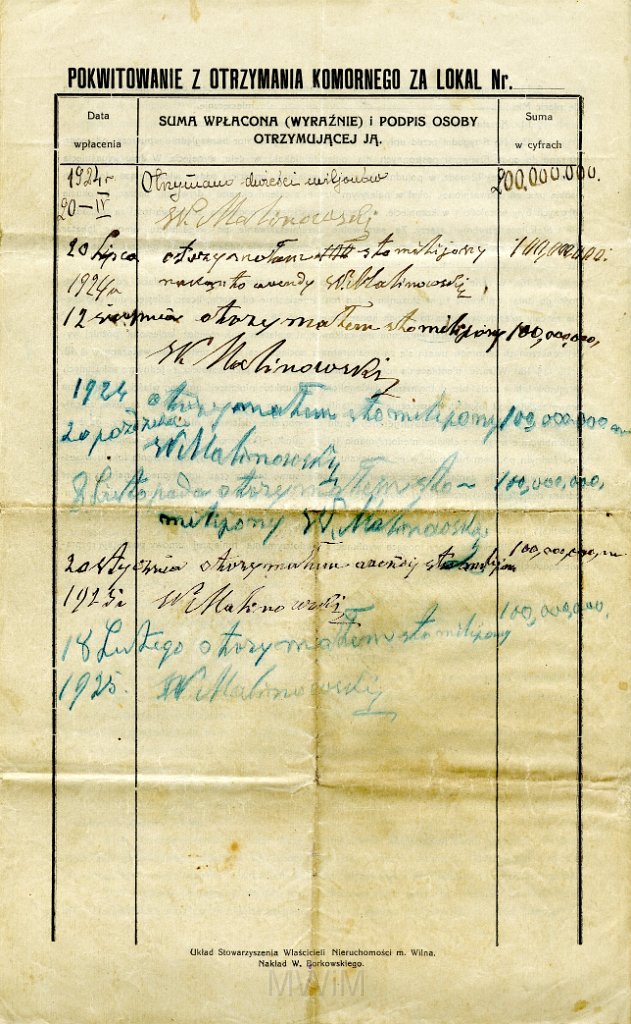 POKWITOWANIE Z OTRZYMANIA KOMORNEGO ZA LOKAL Nr.
Data wpłacenia
SUMA WPŁACONA (WYRAŹNIE) i PODPIS OSOBY
OTRZYMUJĄCEJ JĄ.
Suma w cyfrach
1924 r Otrzymano dwieści miljonów 200.000.000.
20-IV W. Malinowski
20 Lipca otrzymałam sto milijony 100,000,000.
1924 arendy W. Malinowski
12 sierpnia otrzymałem sto milijony 100,000,000,
W. Malinowski
1924 otrzymałem sto milijony 100,000,000
20 W. Malinowski
8 Listopada otrzymałem sto 100,000,000,
milijony W. Malinowski
20 stycznia otrzymałem arendy sto milijon 100,000,000,
1925 W. Malinowski
18 Lutego otrzymałem sto milijony 100,000,000,
1925. W. Malinowski
Układ Stowarzyszenia Właścicieli Nieruchomości m. Wilna.
Nakład W. Borkowskiego.
MWiM